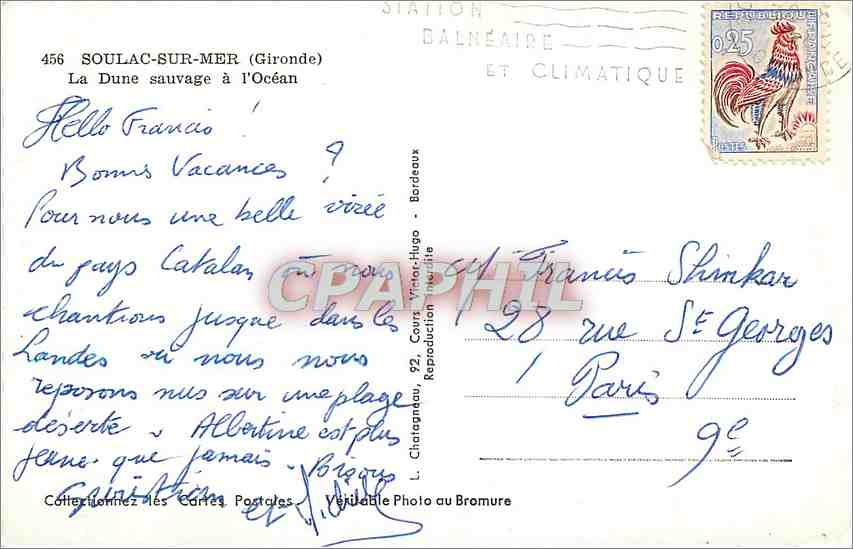 STATION
BALNÉAIRE
ET CLIMATIQUE
REPUBLIQUE FRANÇAISE
0,25
POSTES
456 SOULAC-SUR-MER (Gironde)
La Dune sauvage à l'Océan
Hello Francis !
Bonnes Vacances ?
Pour nous une belle virée
du pays Catalan où nous
chantions jusque dans les
Landes où nous nous
reposons nus sur une plage
déserte. Albertine est plus
jeune que jamais. Bisous
et
L. Chatagneau, 92, Cours Victor-Hugo - Bordeaux
Reproduction Interdite
CPAPHIL
M Francis Shinkar
28 rue St Georges
Paris
9e
Collectionnez les Cartes Postales Véritable Photo au Bromure